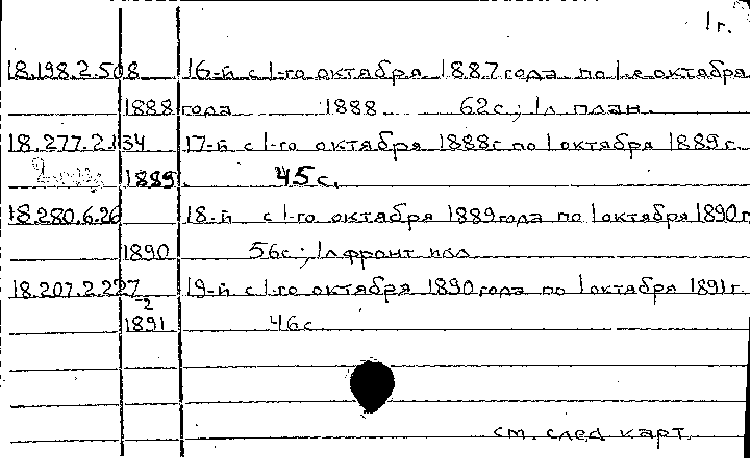 1 г.
18.198.2.508 16-й с 1-го октября 1887 года по 1-е октября
1888 года 1888 62 с.; 1 л план.
18.277.2.134 17-й с 1-го октября 1888 г по 1 октября 1889 г.
1889 45 с.
18.280.6.26 18-й с 1-го октября 1889 года по 1 октября 1890 г
1890 56 с; 1 л фронт илл
18.207.2.227 19-й с 1-го октября 1890 года по 1 октября 1891 г.
-2
1891 46 с
см. след карт.